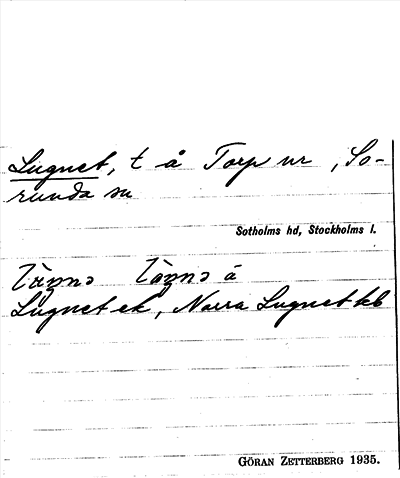 Lugnet, t å Torp nr , So-
runda sn
Sotholms hd, Stockholms l.
å
Lugnet ek, Norra Lugnet kb
GÖRAN ZETTERBERG 1935.